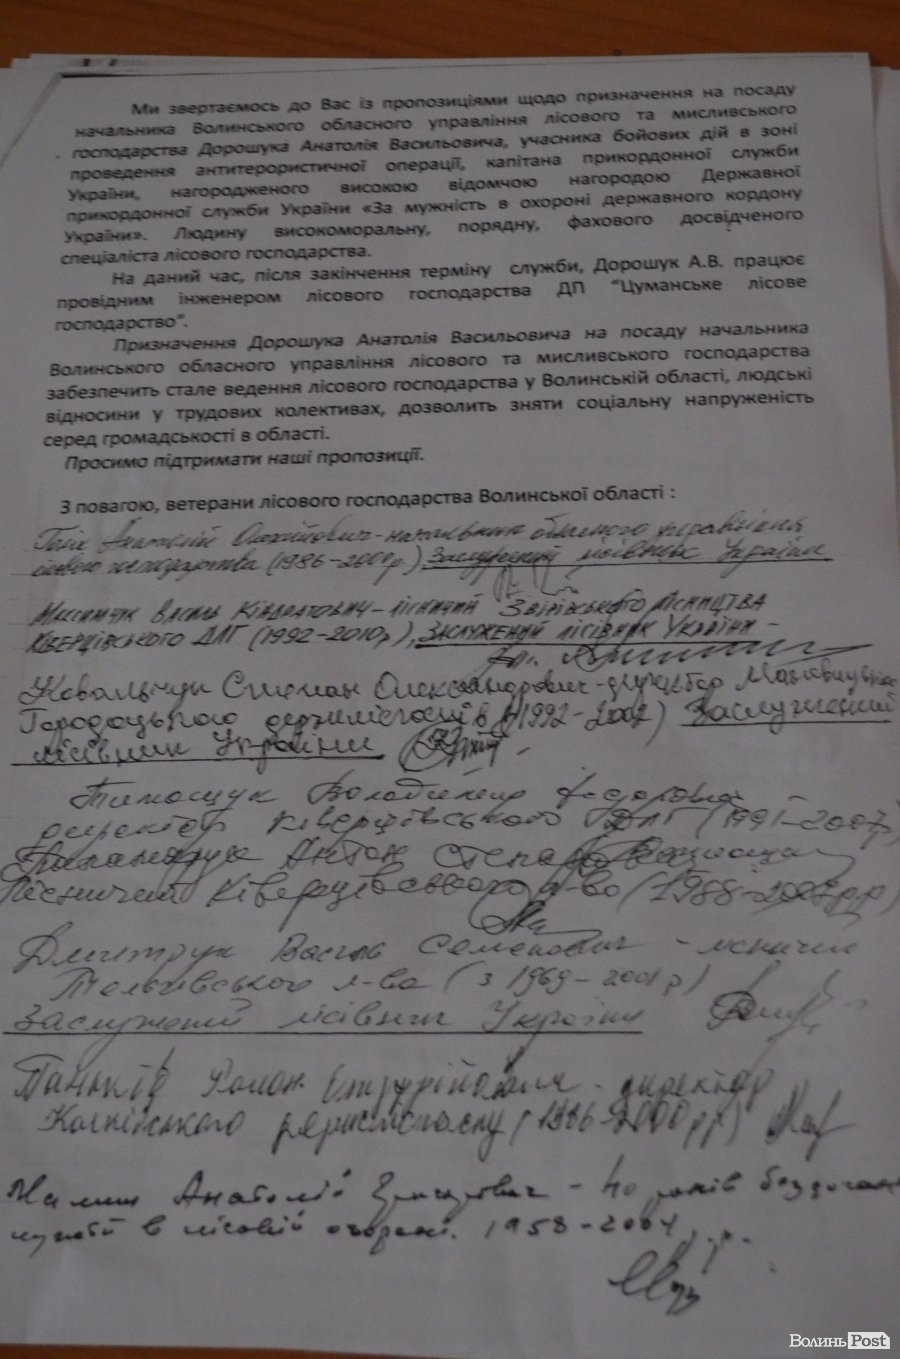 Ми звертаємось до Вас із пропозиціями щодо призначення на посаду
начальника Волинського обласного управління лісового та мисливського
господарства Дорошука Анатолія Васильовича, учасника бойових дій в зоні
проведення антитерористичної операції, капітана прикордонної служби
України, нагородженого високою відомчою нагородою Державної
прикордонної служби України «За мужність в охороні державного кордону
України». Людину високоморальну, порядну, фахового досвідченого
спеціаліста лісового господарства.
На даний час, після закінчення терміну служби, Дорошук А.В. працює
провідним інженером лісового господарства ДП "Цуманське лісове
господарство".
Призначення Дорошука Анатолія Васильовича на посаду начальника
Волинського обласного управління лісового та мисливського господарства
забезпечить стале ведення лісового господарства у Волинській області, людські
відносини у трудових колективах, дозволить зняти соціальну напруженість
серед громадськості в області.
Просимо підтримати наші пропозиції.
З повагою, ветерани лісового господарства Волинської області :
Анатолій начальник обласного управління
господарства (1986-2001р), Заслужений лісівник України
Василь Кіндратович - лісничий Звірівського лісництва
Ківерцівського ДЛГ (1992-2010р), Заслужений лісівник України -
Ковальчук Степан Олександрович - директор
Городоцького держлісгоспів (1992-2007) Заслужений
лісівник України
Тимощук Володимир Федорович
директор Ківерцівського ДЛГ (1991-2007р
Антон
Лісничий Ківерцівського л-во (1988-2007рр)
Дмитрук Василь Семенович - лісничий
л-ва (з 1969-2001р)
Заслужений лісівник України
Паньків Роман - директор
Колківського держлісгоспу (1986-2000рр)
Анатолій Григорович - 40 років бездоганно
в лісовій охороні. 1958-2004р.р.
Волинь Post